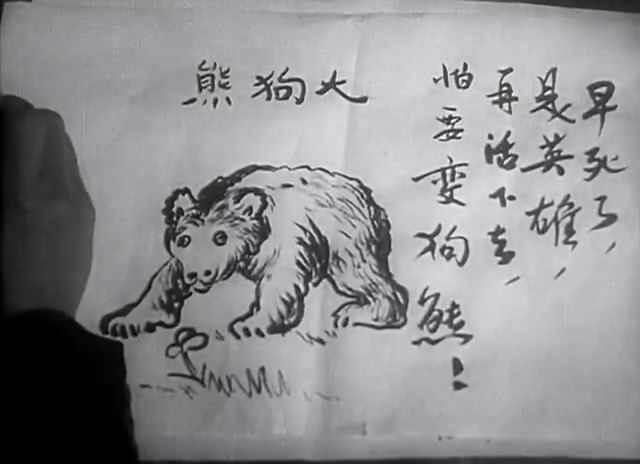 早死了，
是英雄，
再活下去，
怕要变狗熊！
大狗熊